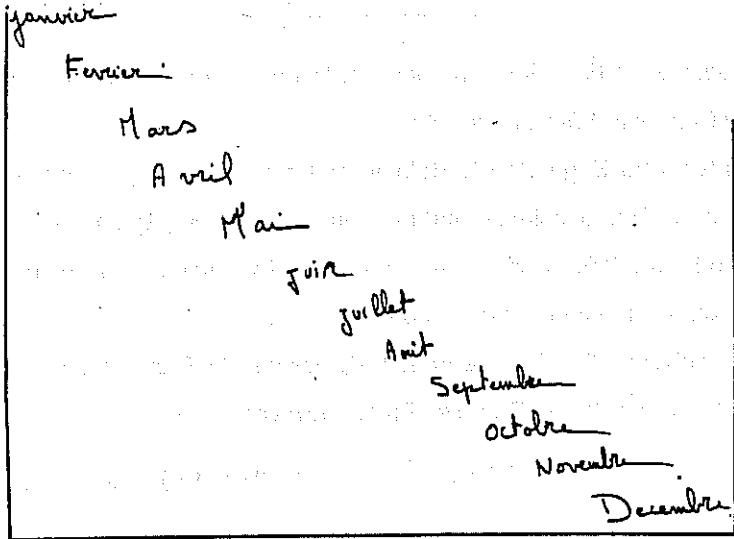 janvier
Fevrier
Mars
Avril
Mai
juin
juillet
Aout
Septembre
Octobre
Novembre
Decembre